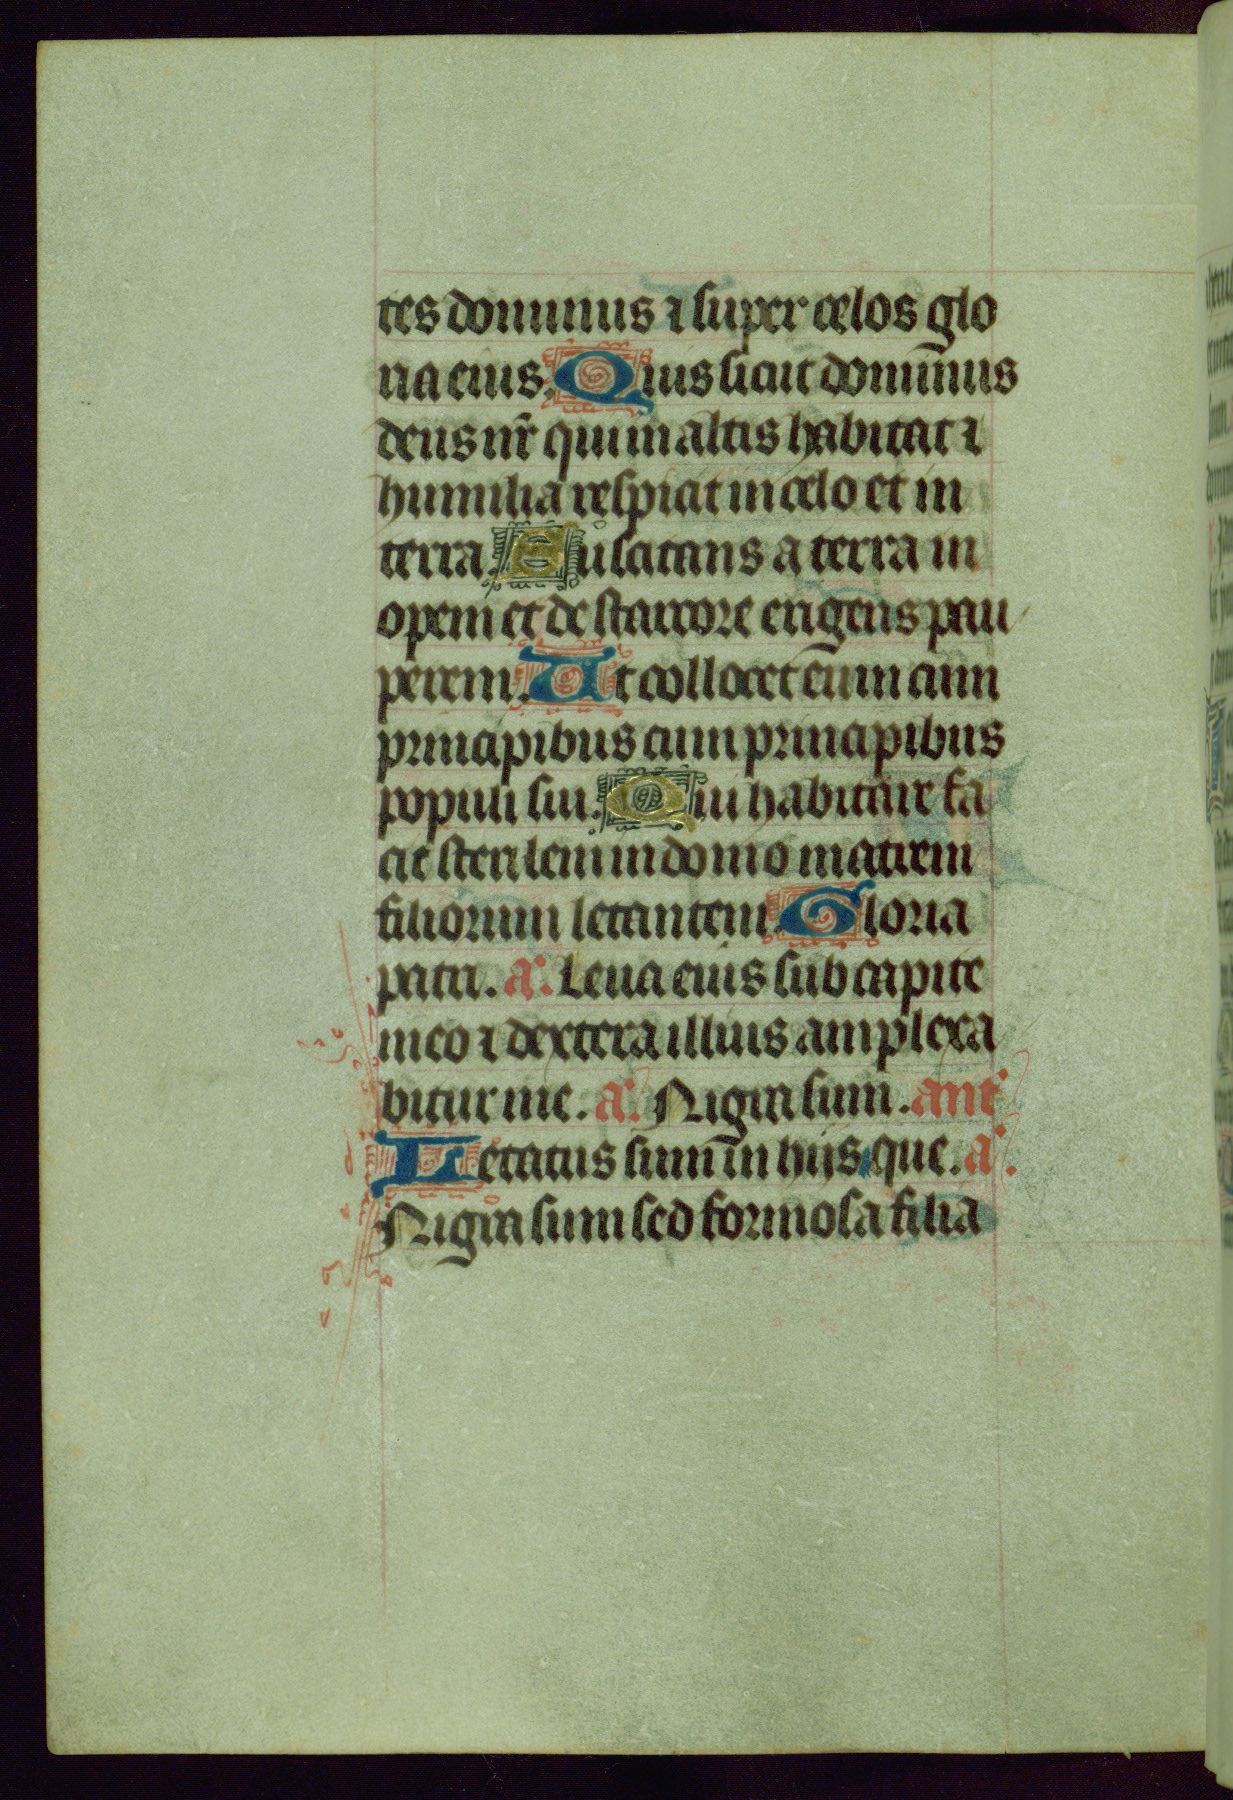 tes dominus ⁊ super celos glo
ria eius. Quis sicut dominus
deus nr̄ qui in altis habitat ⁊
humilia respicit in celo et in
terra. Suscitans a terra in
opem et de stercore erigens pau
perem. Ut collocet eum cum
principibus cum principibus
populi sui. Qui habitare fa
cit sterilem in domo matrem
filiorum letantem. Gloria
patri. a. Leua eius sub capite
meo ⁊ dextera illius amplexa
bitur me. a. Nigra sum. ant
Letatus sum in hijs que. a.
Nigra sum sed formosa filia